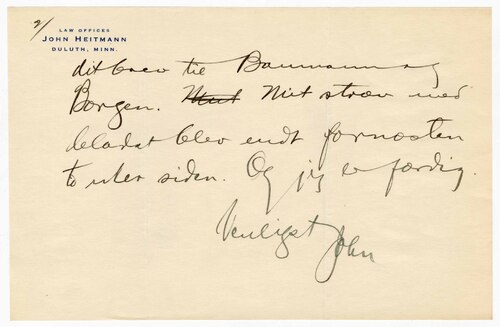 2/
LAW OFFICES
JOHN HEITMANN
DULUTH, MINN.
dit brev til Baumann og
Borgen. Mit stræv med
bladet blev endt for næsten
to uker siden. Og jeg er færdig.
Venligst John